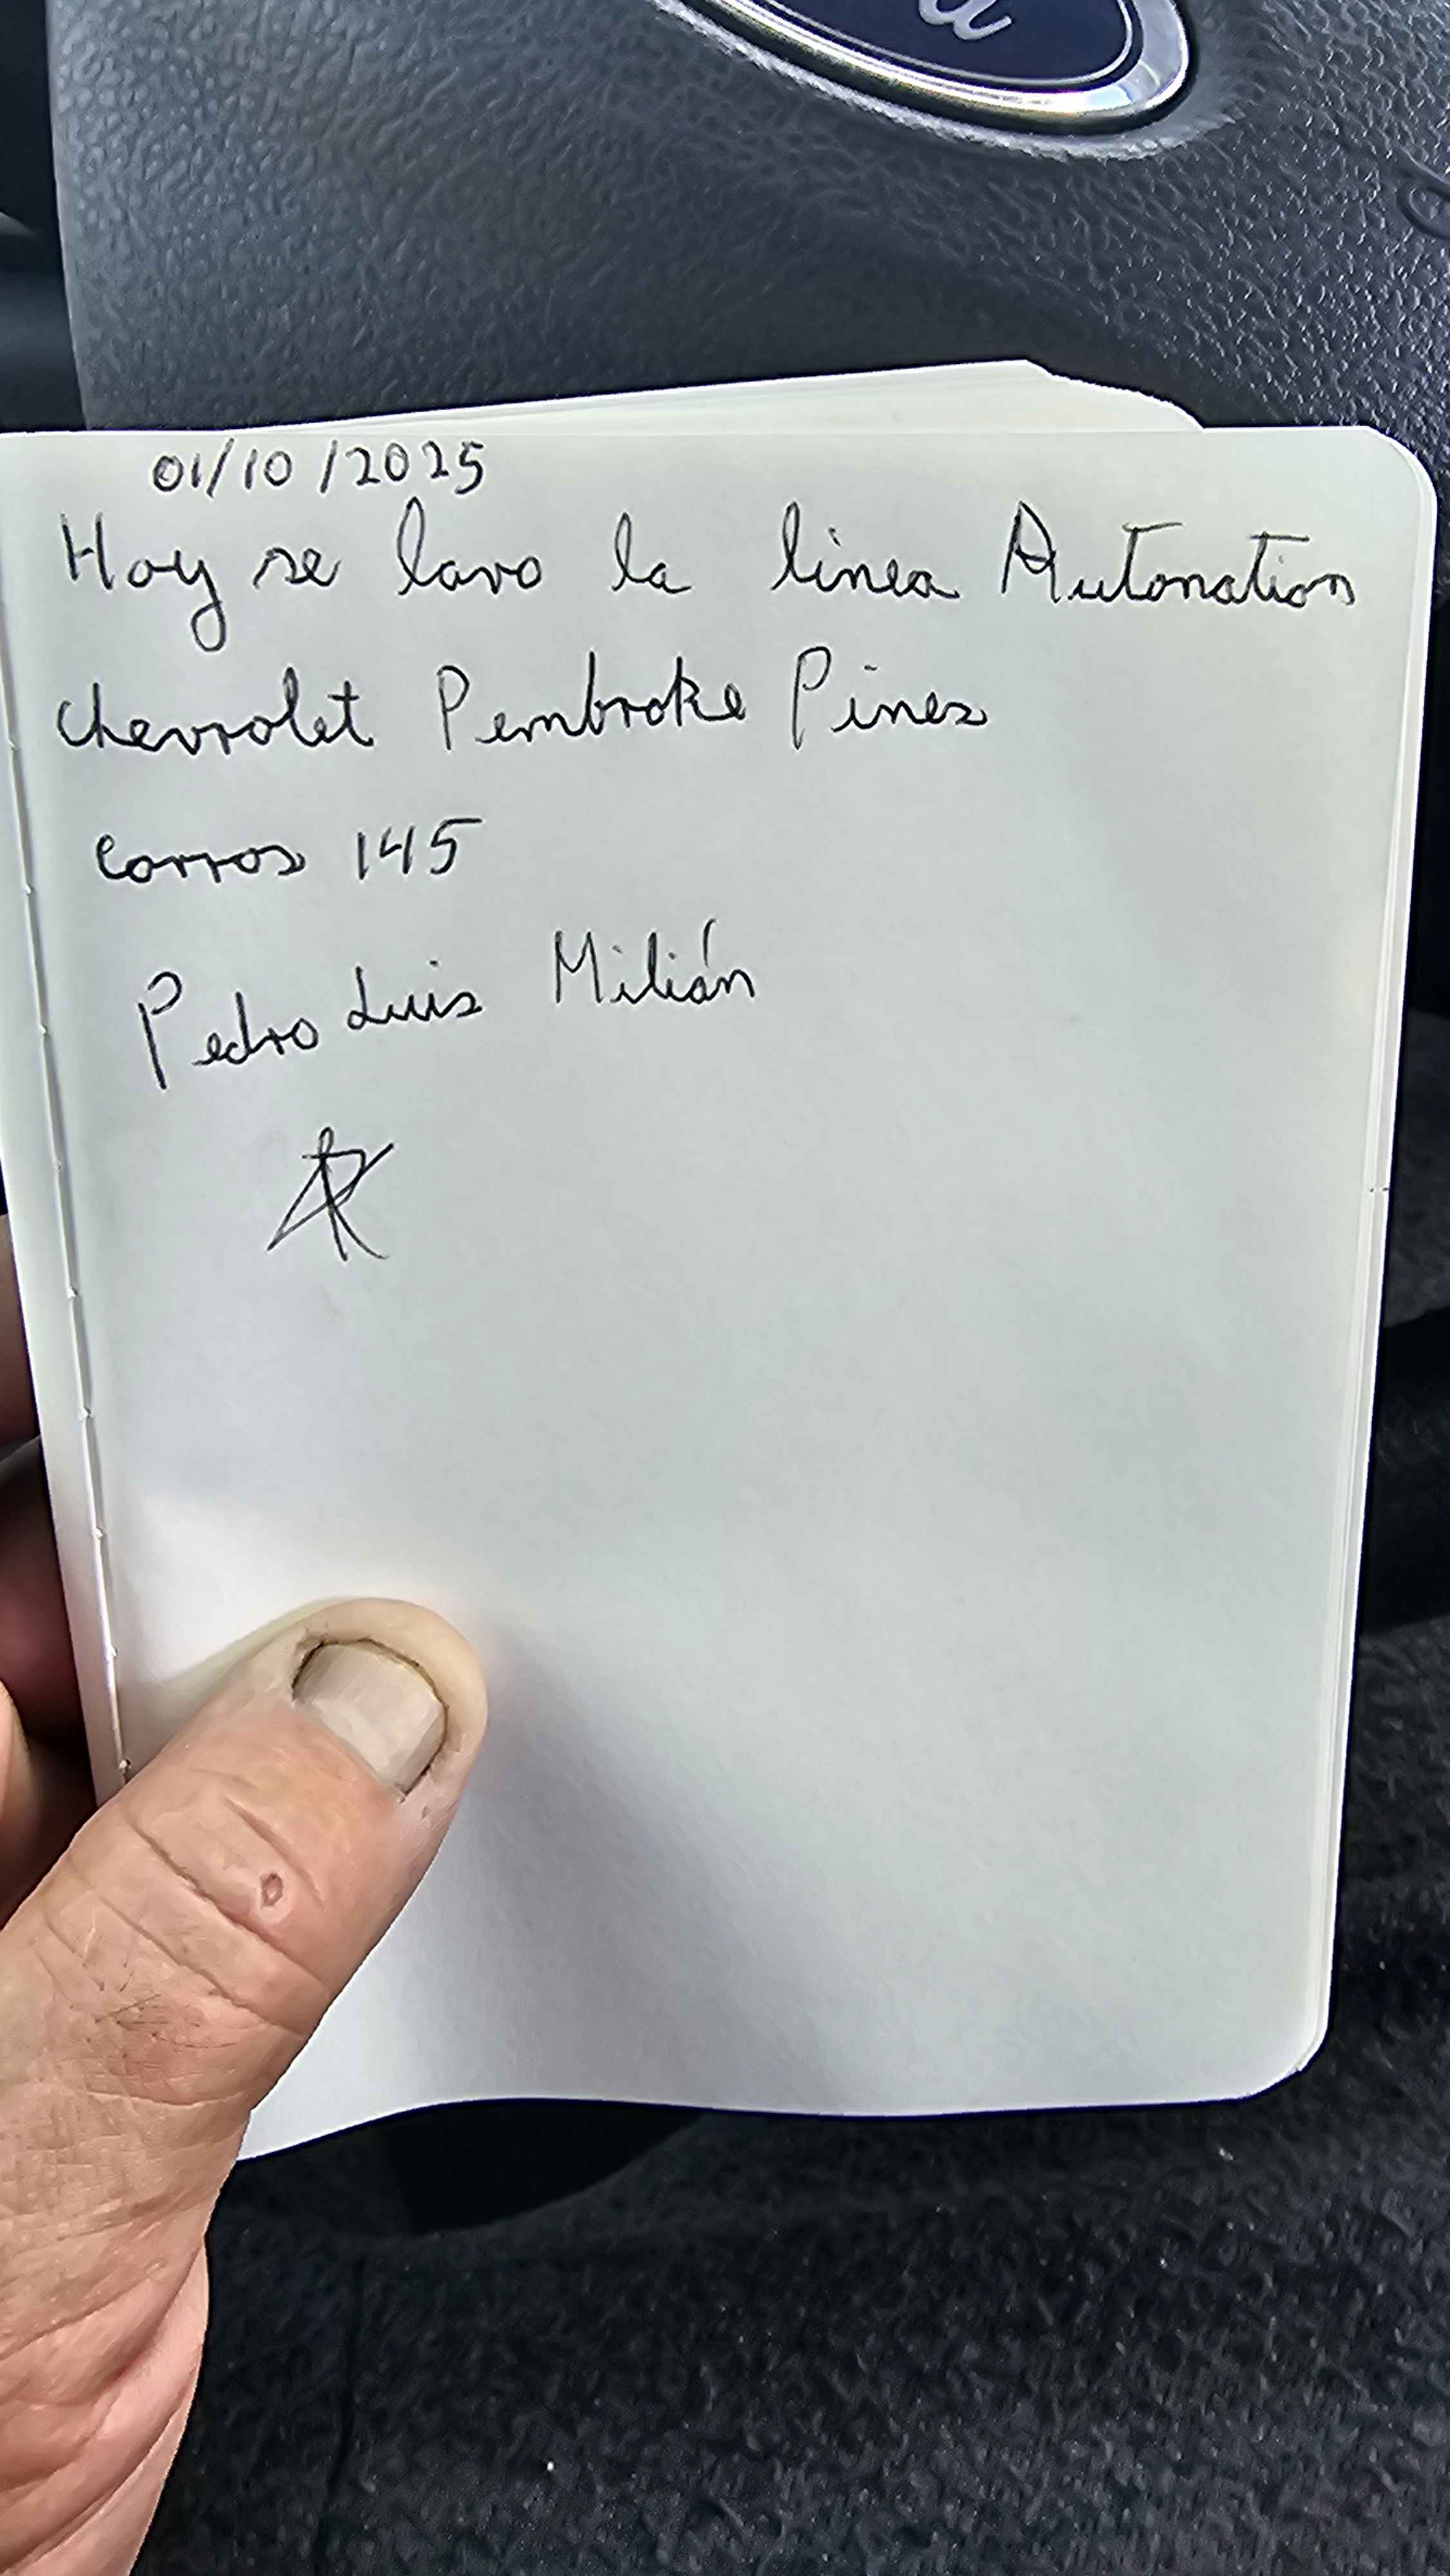 01/10/2025
Hoy se lavo la linea Autonation
chevrolet Pembroke Pines
carros 145
Pedro Luis Milián